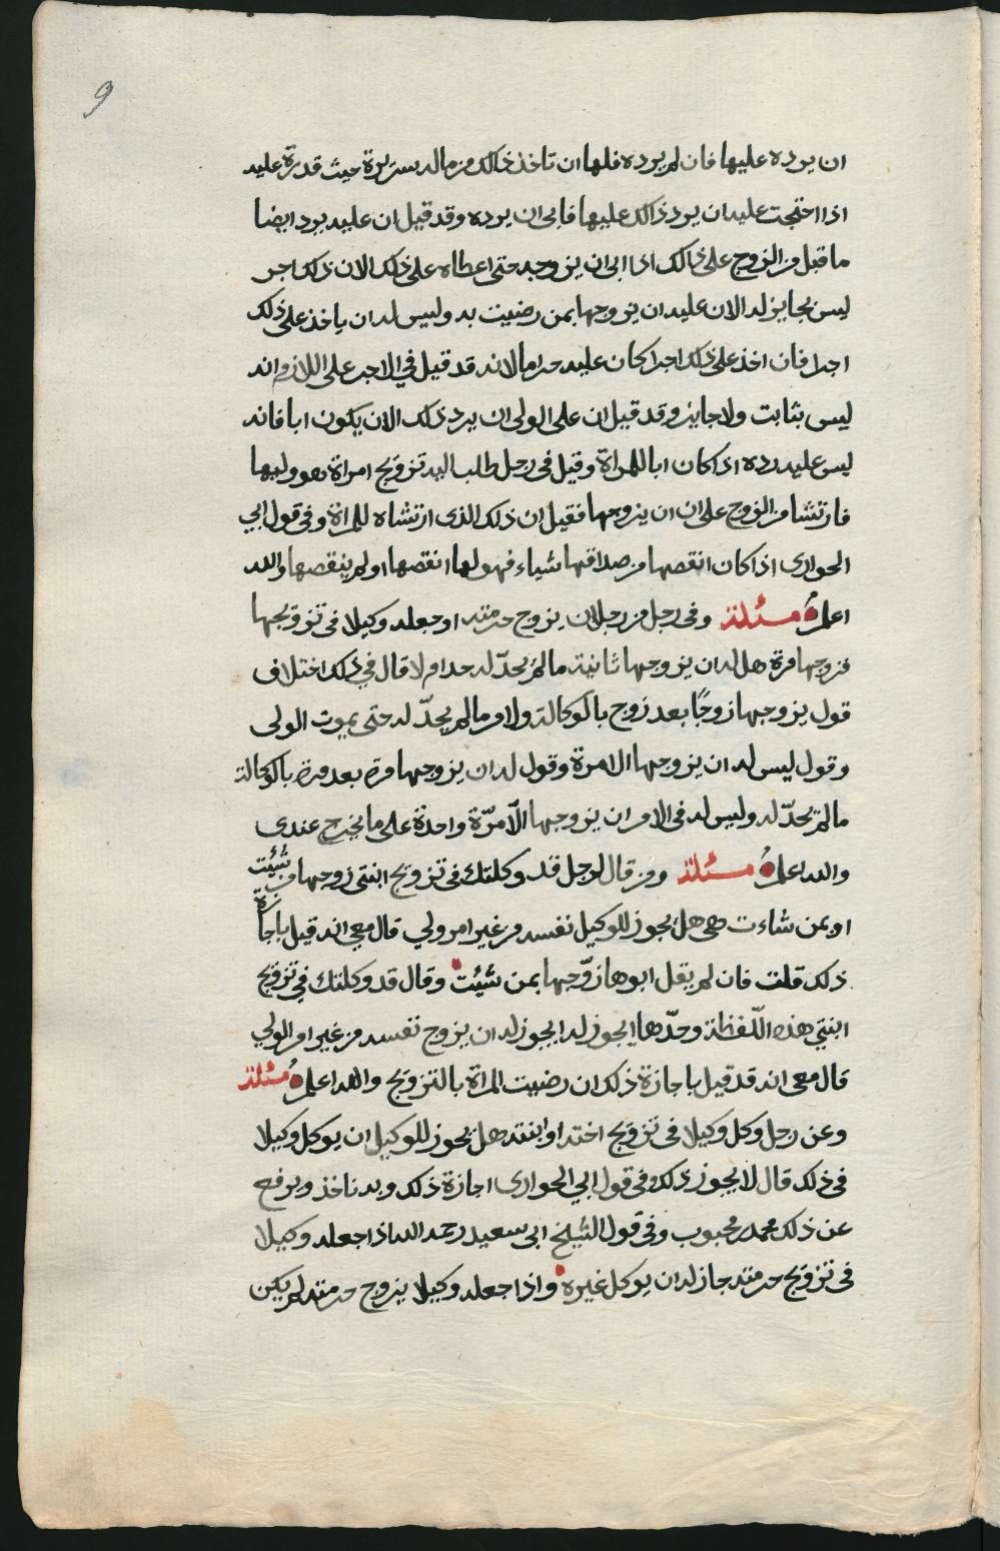 9
ان يرده عليها فان لم يرده فلها ان تاخذ ذلك من ماله سريرة حيث قدرة عليه
اذا احتجت عليه ان يرد ذالك عليها فابى ان يرده وقد قيل ان عليه يرد ايضا
ما قبل من الزوج على ذالك اذا ابى ان يزوجه حتى اعطاه على ذلك لان ذلك اجر
ليس بجايز له الان عليه ان يزوجها بمن رضيت به وليس له ان ياخذ على ذلك
اجرا فان اخذ على ذلك اجرا كان عليه حراما لانه قد قيل في الاجر على اللازم انه
ليس بثابت ولا جايز وقد قيل ان على الولى ان يرد ذلك الا ان يكون ابا فانه
ليس عليه رده اذا كان ابا للمراة وقيل فى رجل طلب اليه تزويج امراة هو وليها
فارتشا من الزوج على ان ان يزوجها فقيل ان ذلك الذى ارتشاه للمراة وفى قول ابي
الحوارى اذا كان انقصها من صداقها شياء فهو لها انقصها او لم ينقصها والله
اعلم مسئلة وفى رجل من رجلان يزوج حرمته او جعله وكيلا فى تزويجها
فزوجها مرة هل له ان يزوجها ثانية ما لم يحدّ له حد ام لا قال في ذلك اختلاف
قول يزوجها زوجًا بعد زوج بالوكالة والامر ما لم يحدّ له حتى يموت الولى
وقول ليس له ان يزوجها الا مرة وقول له ان يزوجها مرة بعد مرة بالوكالة
ما لم يحدّ له وليس له فى الامر ان يزوجها الّا مرّة واحدة على ما يخرج عندى
والله اعلم مسئلة ومن قال لرجل قد وكلتك فى تزويج ابنتى زوجها من شئت
او بمن شاءت هى هل يجوز للوكيل نفسه من غير امر ولي قال معي انه قيل باجازة
ذلك قلت فان لم يقل ابوها زوّجها بمن شئت وقال قد وكلتك في تزويج
ابنتي هذه اللّفظة وحدّها ايجوز له ايجوز له ان يزوج نفسه من غير امر الولي
قال معى انه قد قيل باجازة ذلك ان رضيت المراة بالتزويج والله اعلم مسئلة
وعن رجل وكل وكيلا فى تزويج اخته او ابنته هل يجوز للوكيل ان يوكل وكيلا
فى ذلك قال لا يجوز ذلك وفى قول ابي الحوارى اجازة ذلك وبه ناخذ ويرفع
عن ذلك محمد بن محبوب وفى قول الشيخ ابى سعيد رحمه الله اذا جعله وكيلا
فى تزويج حرمته جاز له ان يوكل غيره واذا جعله وكيلا يزوج حرمته لم يكن